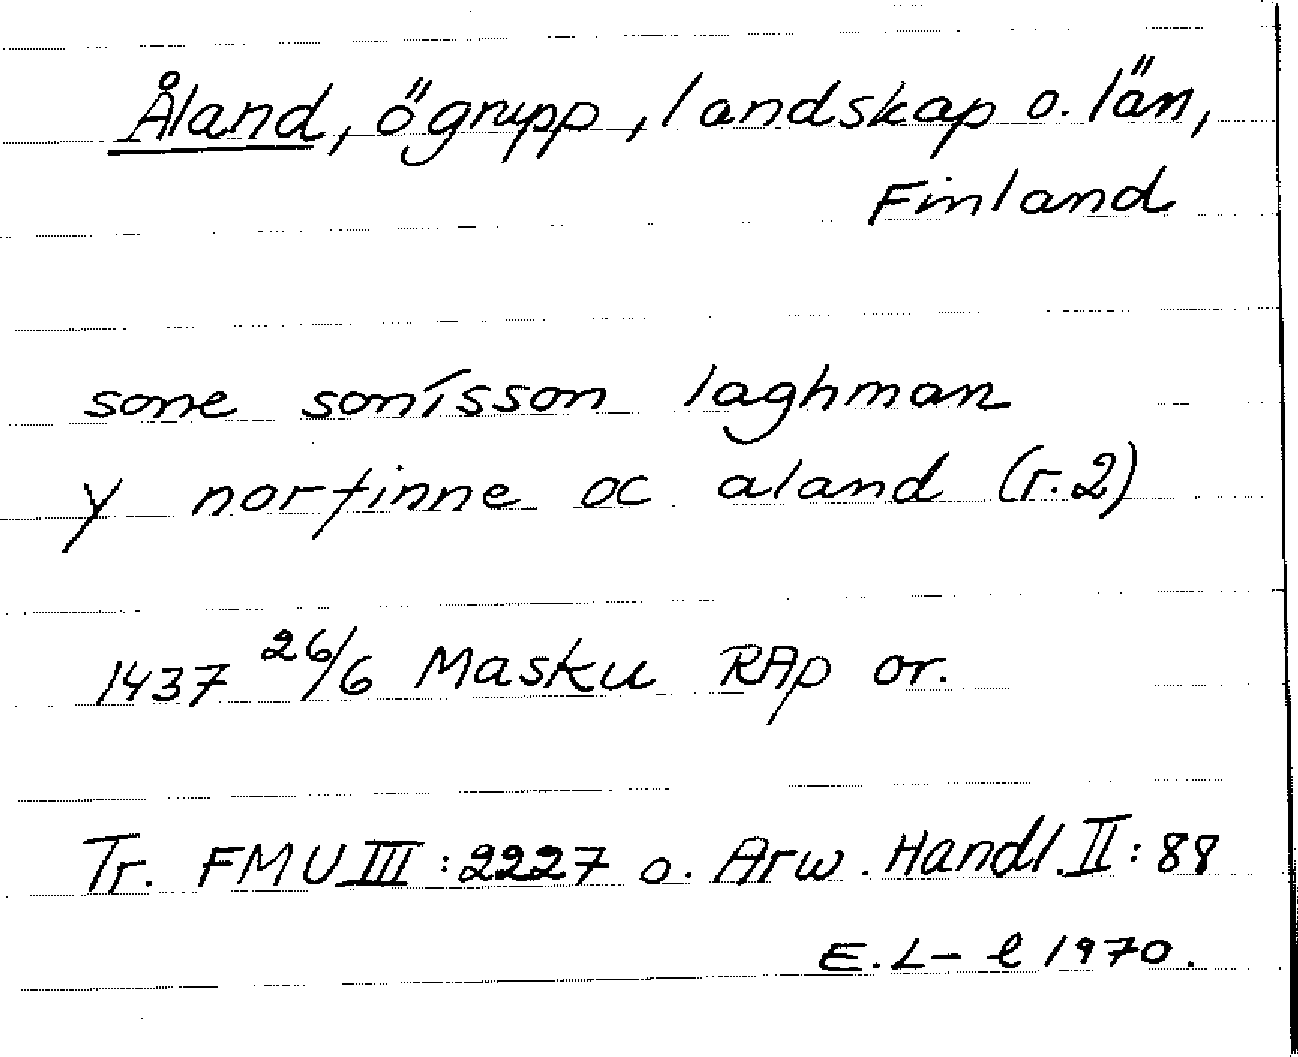 Åland, ögrupp, landskap o. län,
Finland
sone sonísson laghman
y norfinne oc aland (r.2)
1437 26/6 Masku RAp or.
Tr. FMU III:2227 o. Arw. Handl. II:88
E.L-l 1970.